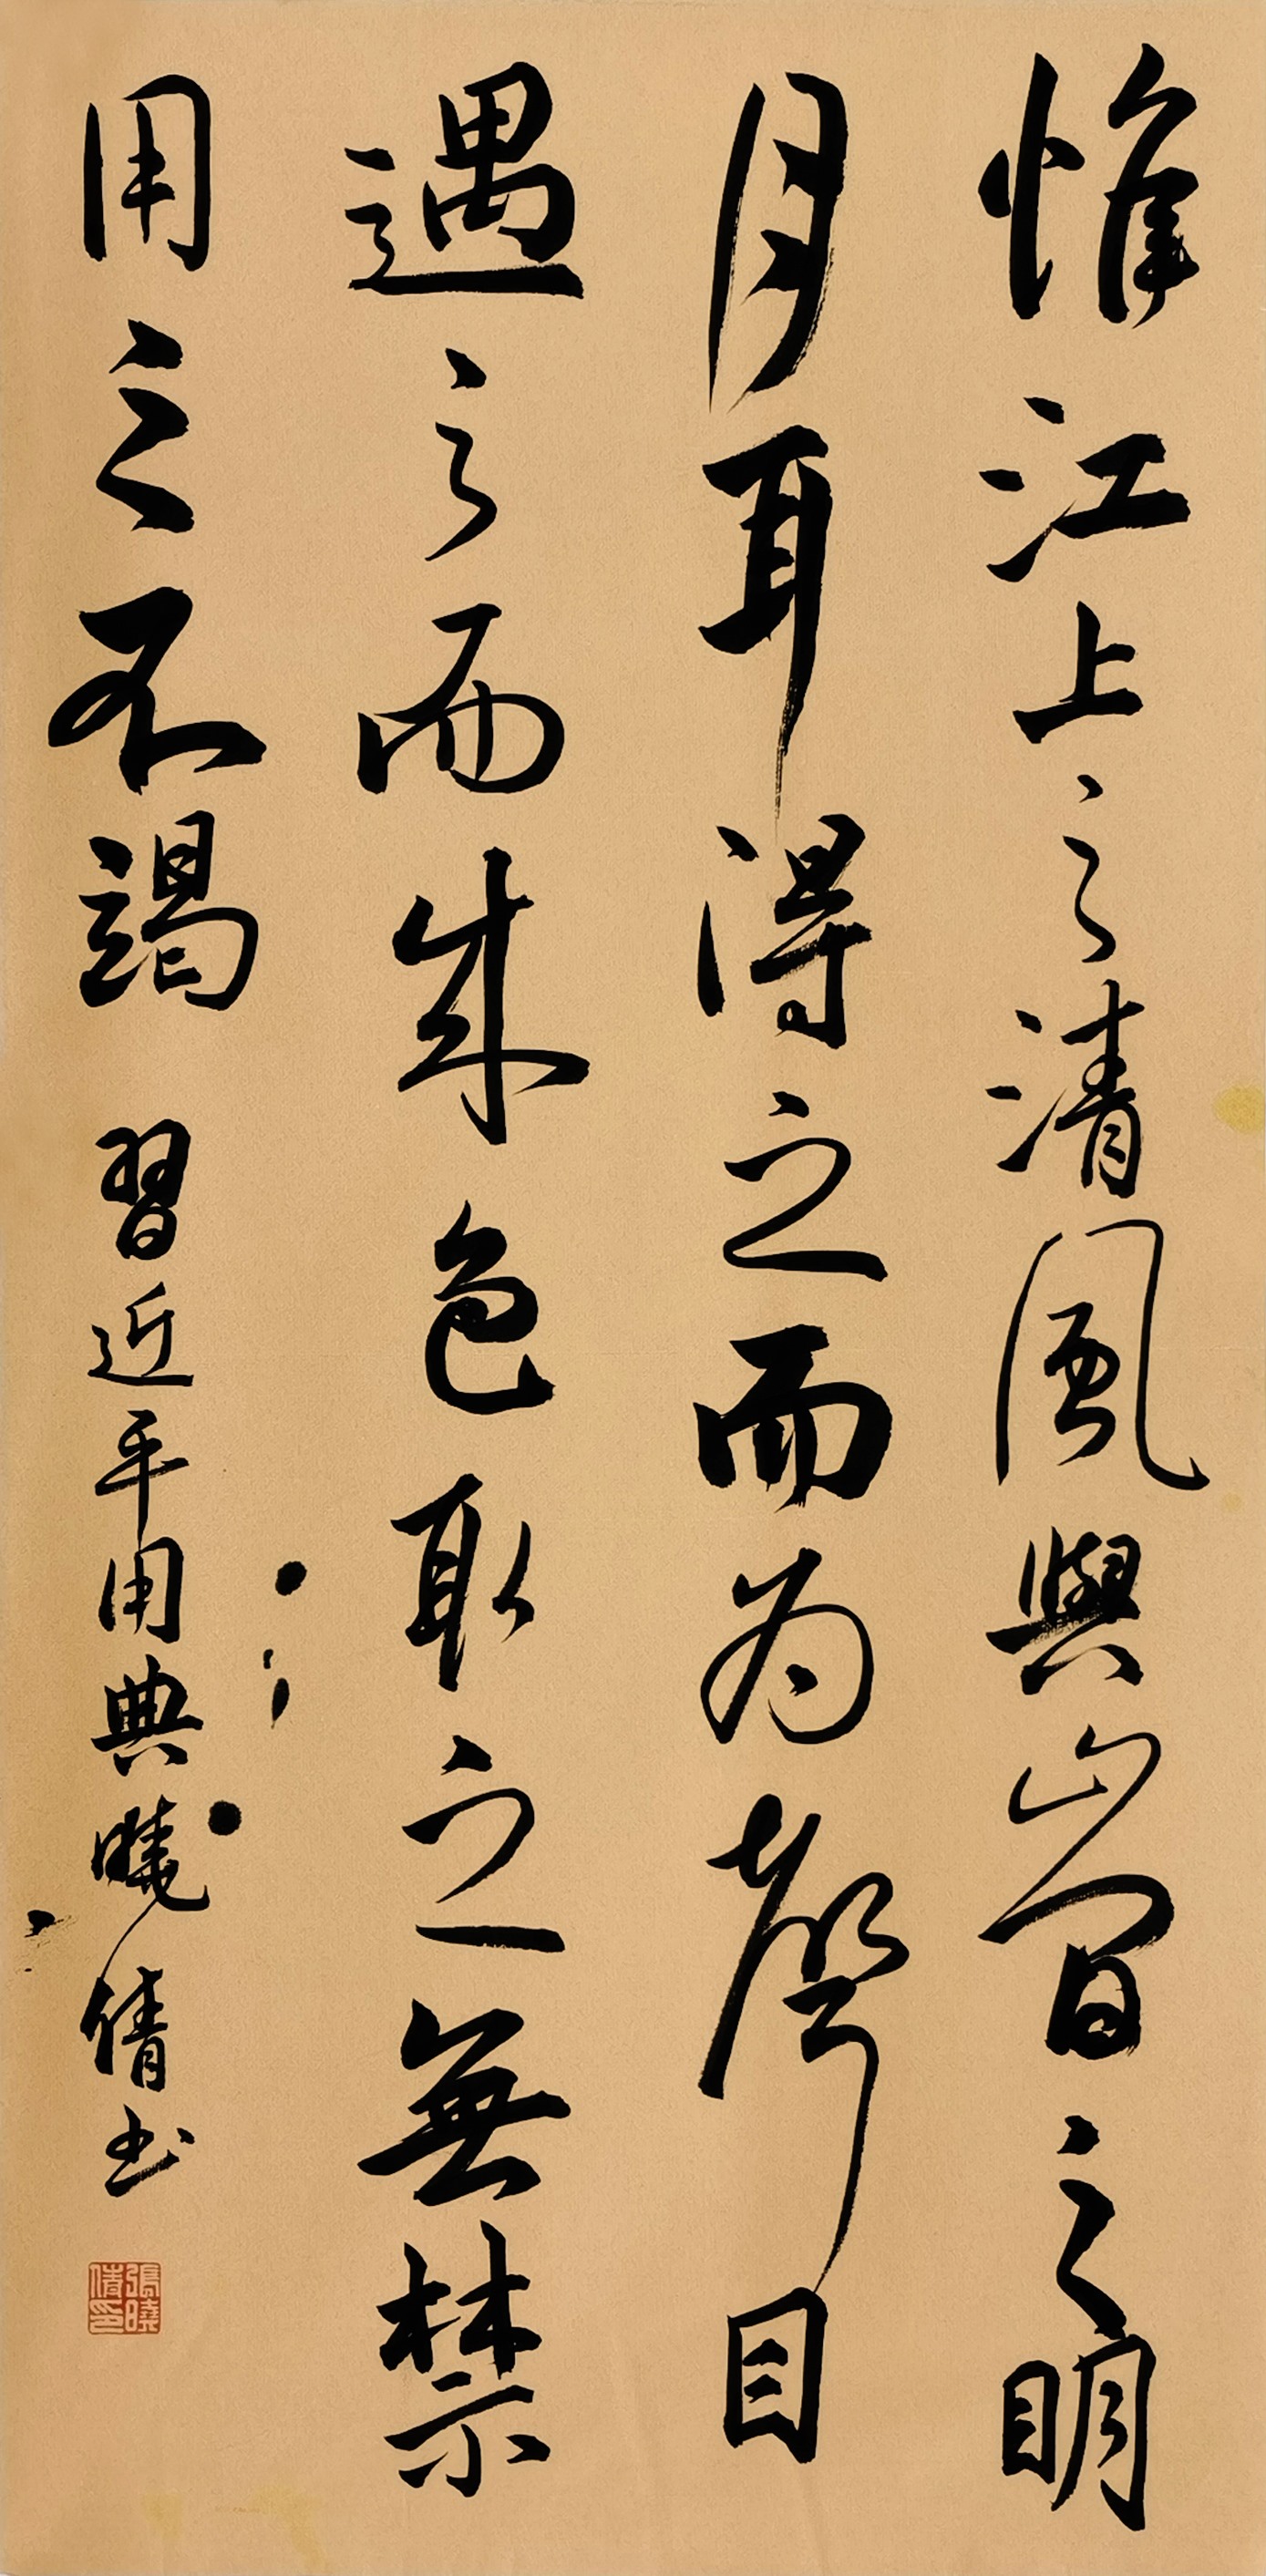 惟江上之清風與山間之明
月耳得之而为聲目
遇之而成色取之無禁
用之不竭 習近平用典曉倩书
張曉
倩印